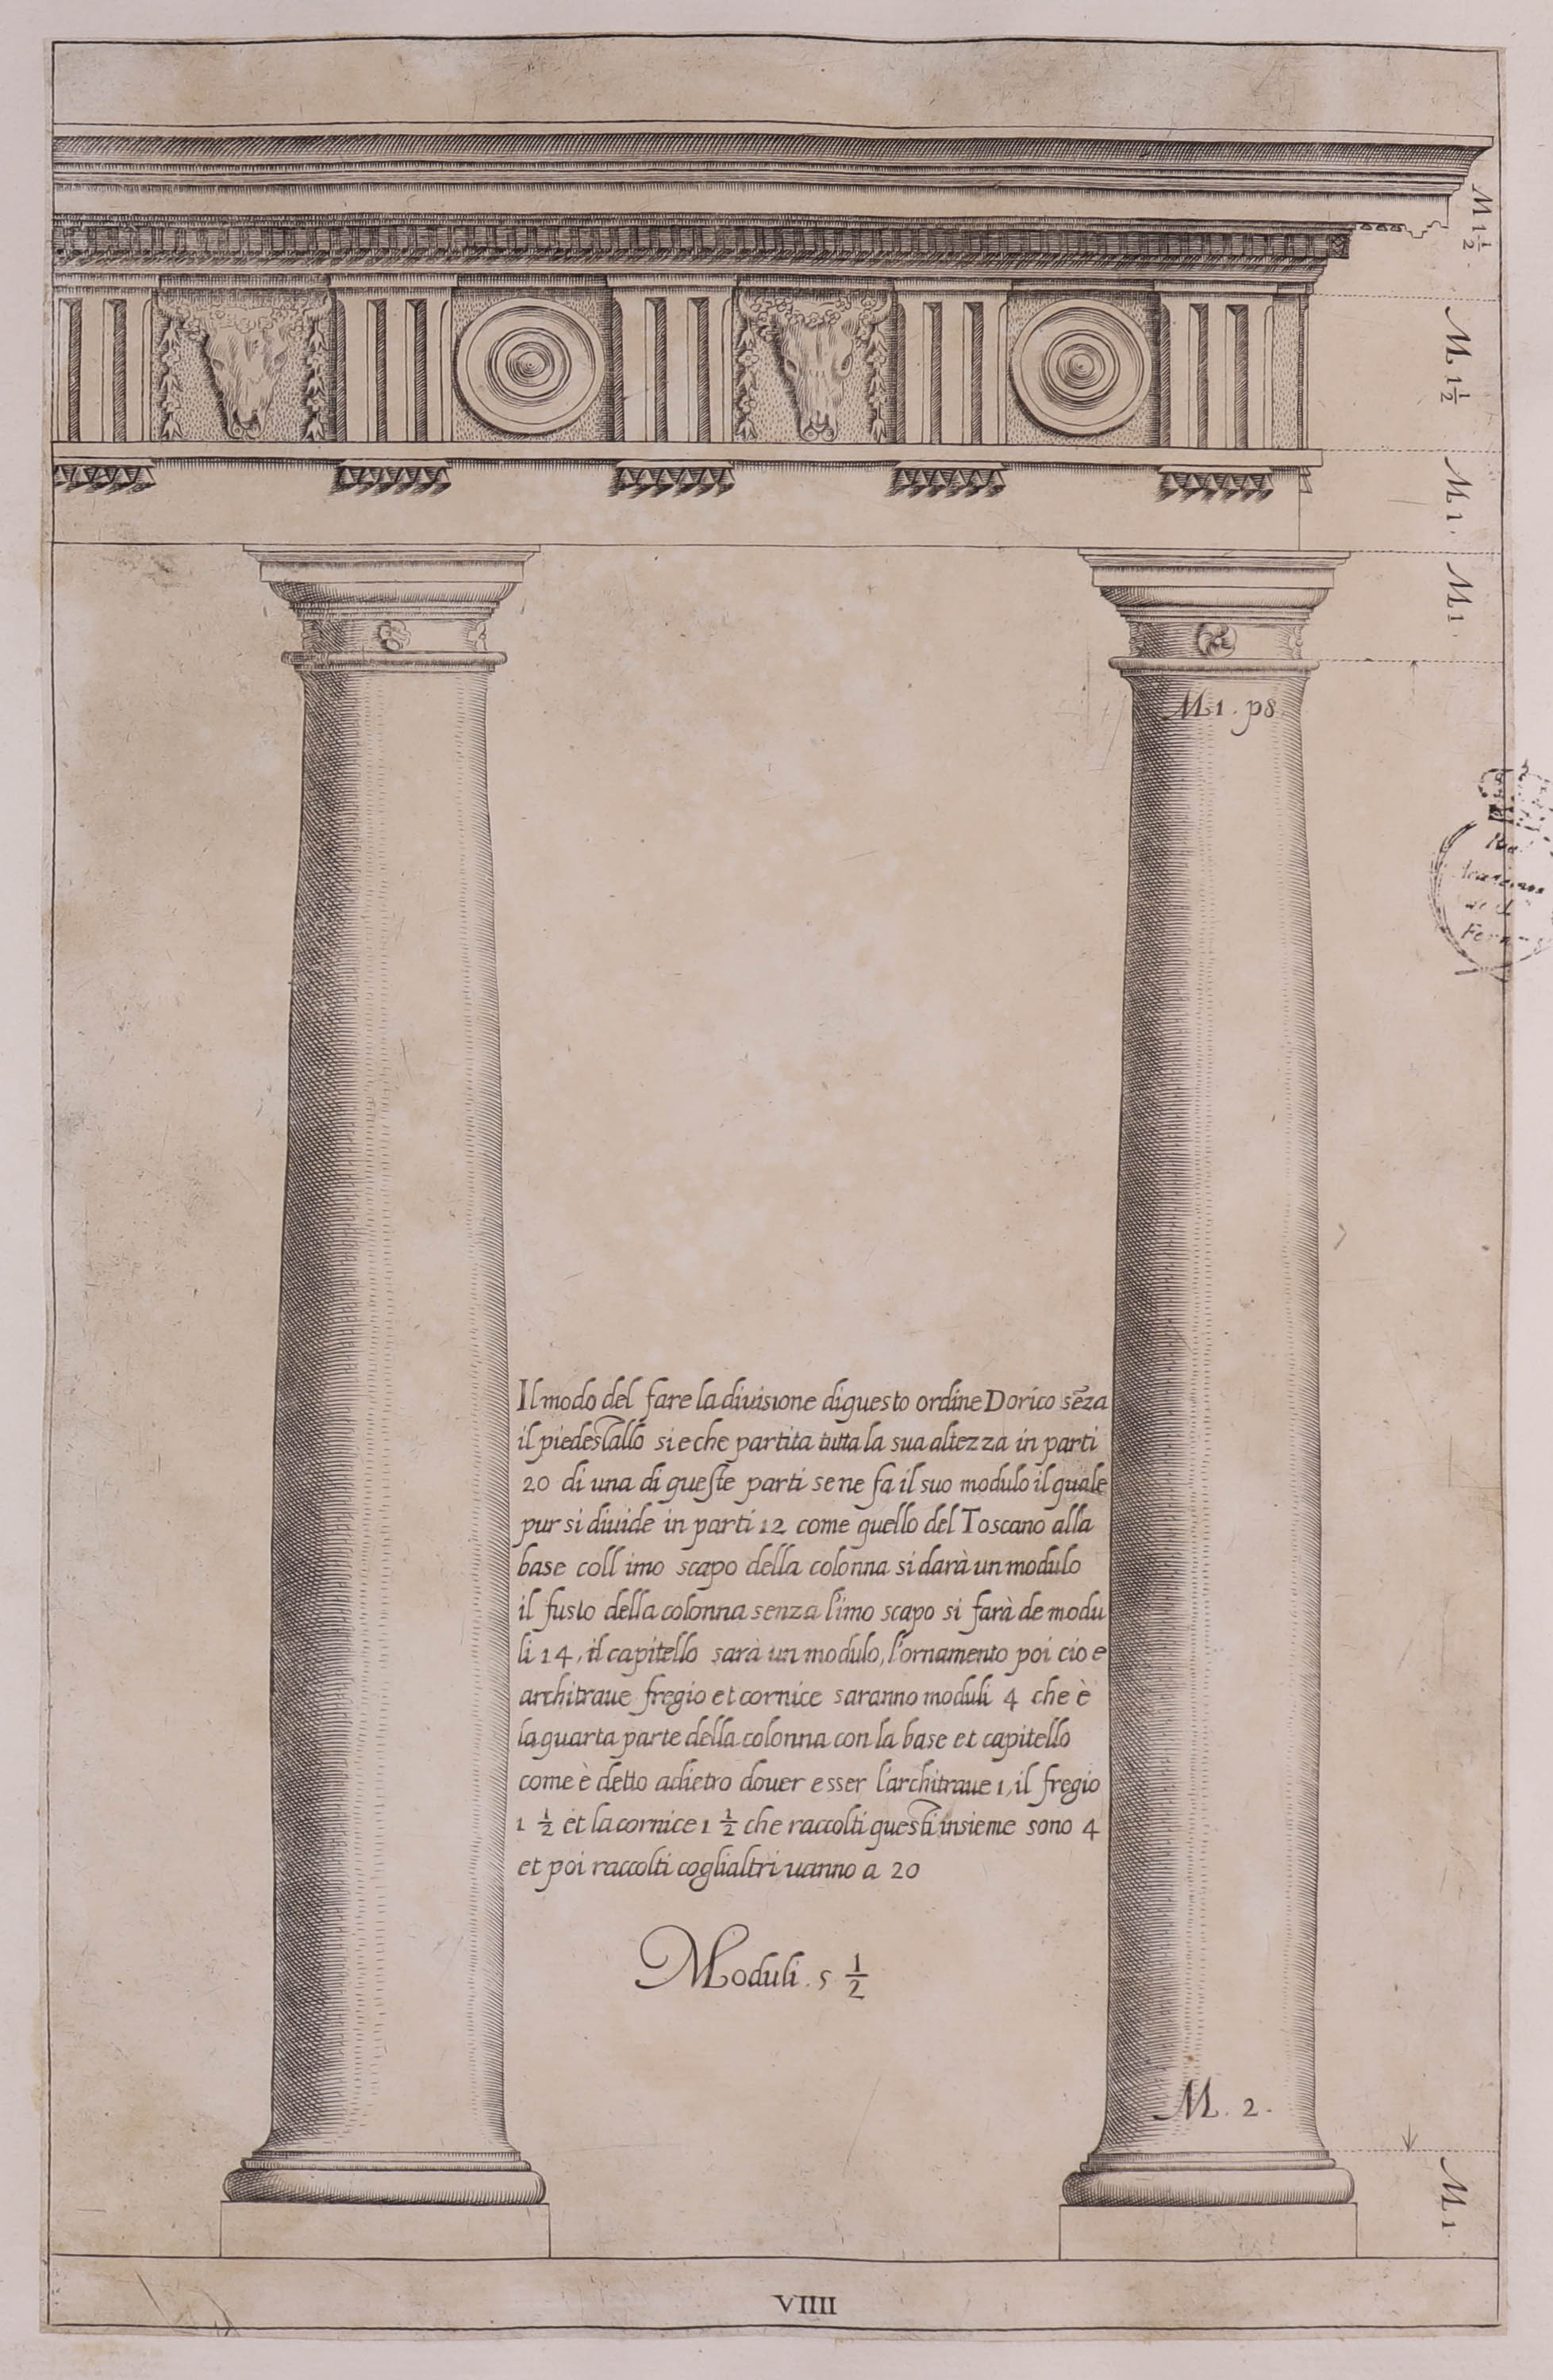 M 1 1/2.
M. 1 1/2
M. 1.
M 1.
M. 1. p8
Il modo del fare la diuisione di questo ordine Dorico sẽza
il piedestallo si e che partita tutta la sua altezza in parti
20 di una di queste parti se ne fa il suo modulo il quale
pur si diuide in parti 12 come quello del Toscano alla
base coll imo scapo della colonna si darà un modulo
il fusto della colonna senza l'imo scapo si farà de modu
li 14, il capitello sarà un modulo, l'ornamento poi cio e
architraue fregio et cornice saranno moduli 4 che è
la quarta parte della colonna con la base et capitello
come è detto adietro douer esser l'architraue 1, il fregio
1 1/2 et la cornice 1 1/2 che raccolti questi insieme sono 4
et poi raccolti co gli altri uanno a 20
Moduli. 5 1/2
M. 2.
M. 1.
VIIII